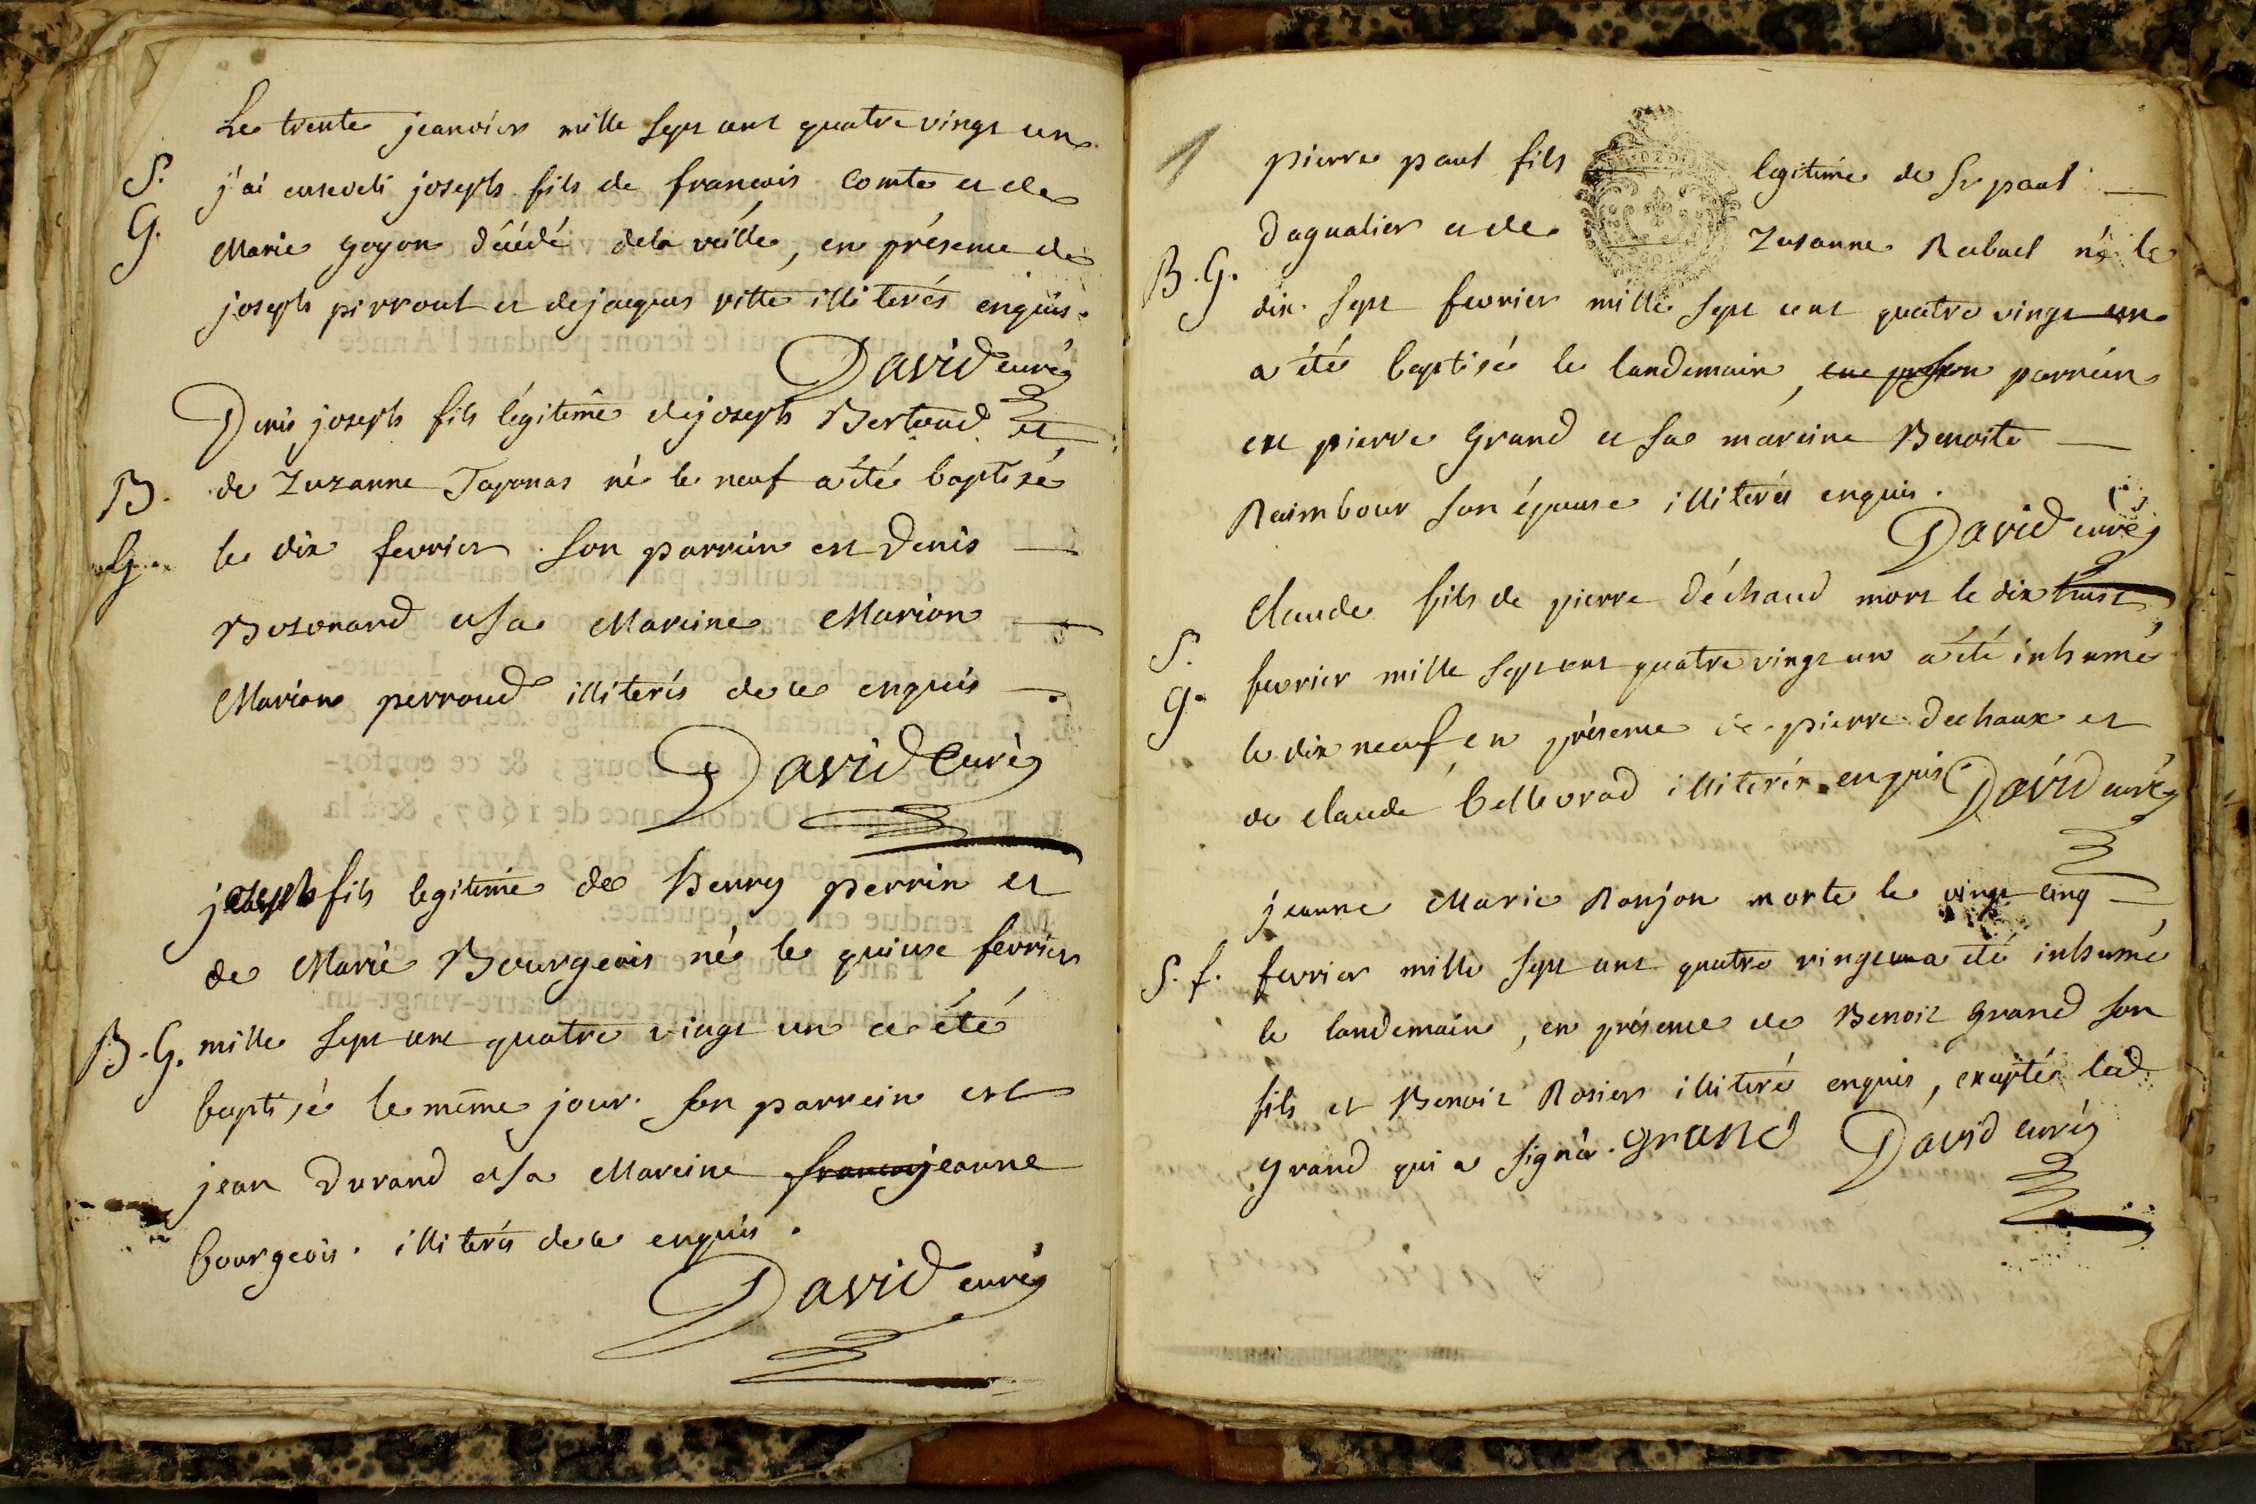 Le trente jeanvier mille sept cent quatre vingt un
S. j'ai enseveli joseph fils de francois Comte et de
G. Marie goyon décédé dela veille, en présence de
joseph pirrout et de jaques vitte illiterés enquis.
David curé
Denis joseph fils légitime de joseph Bertoud et
B. de Zuzanne Taponas né le neuf a été baptisé
G. le dix fevrier. Son parrein est Denis
Bosonard et sa Mareine Marion
Marion perroud illiterés de ce enquis
David Curé
joseph fils legitime de henry perrin et
de Marie Bourgeois né le quinse fevrier
B. G. mille sept cent quatre vingt un a été
baptisé le même jour. son parrein est
jean Durand et sa Mareine jeanne
bourgeois. illiterés de ce enquis.
David curé
1
pierre paul fils legitime de Sr paul
Dagualier et de Zusanne né le
B. G. dix-sept fevrier mille sept cent quatre vingt un
a été baptisé le landemain, parrein
est pierre grand et sa mareine Benoite
Raimbour son épouse illiterés enquis.
David curé
Claude fils de pierre Déchaud mort le dix huit
S. fevrier mille sept cent quatre vingt un a été inhumé
G. le dix neuf en présence de pierre Dechaux et
de Claude bellevrad illiterés enquis. David curé
jeanne Marie Ronjon morte le vingt cinq
S. f. fevrier mille sept cent quatre vingt un a été inhumé
le landemain, en présence de Benoit grand son
fils et Benoit Rosier illiteré enquis, exceptés led.
grand qui a signé. grand David curé